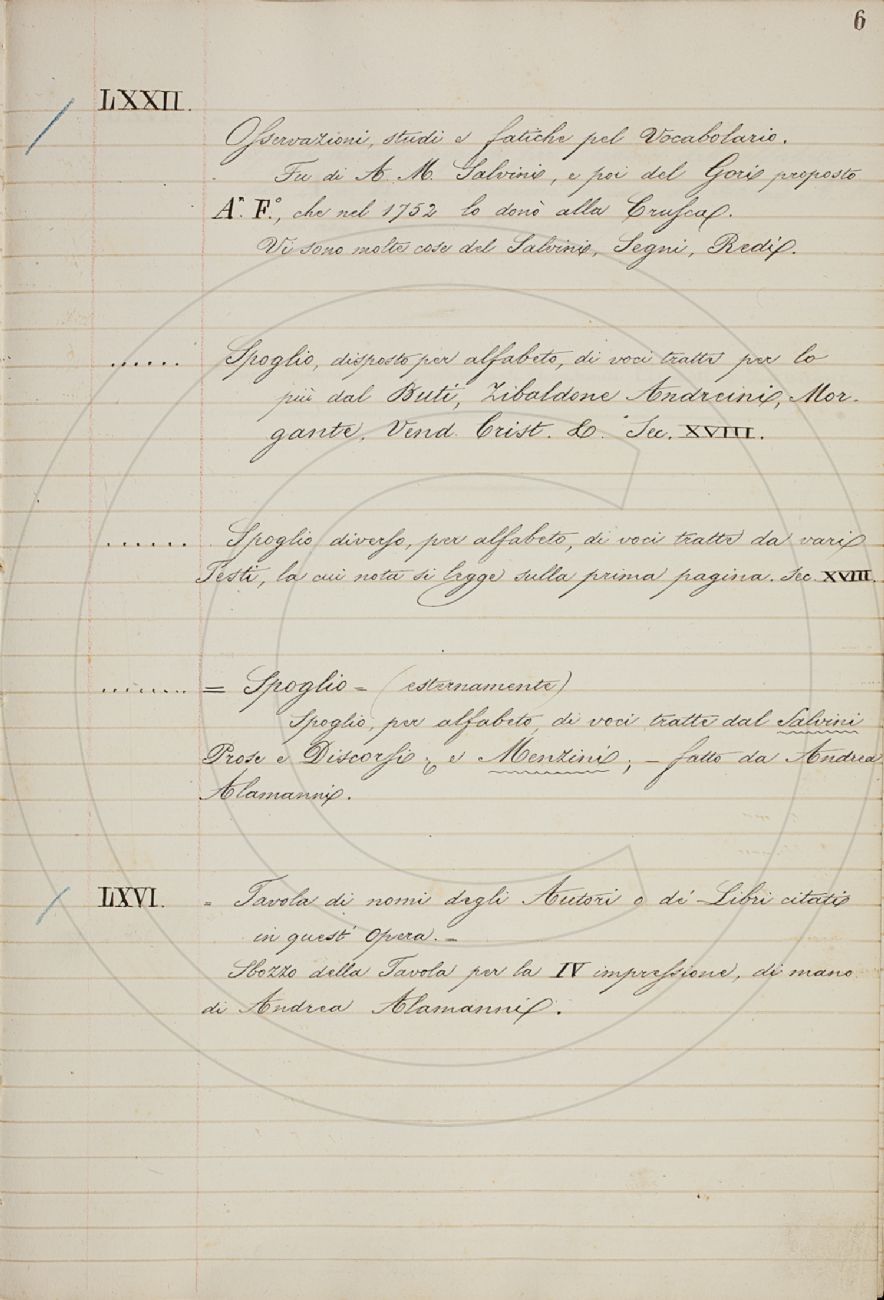 6
LXXII.
Osservazioni, studi e fatiche pel Vocabolario.
Fu di A. M. Salvini, e poi del Gori proposto
A.r F.o, che nel 1752 lo donò alla Crusca.
Vi sono molte cose del Salvini, Segni, Redi.
...... Spoglio, disposto per alfabeto, di voci tratte per lo
più dal Buti, Zibaldone Andreini, Mor-
gante, Vend. Crist. &. Sec. XVIII.
...... Spoglio diverso, per alfabeto, di voci tratte da vari
Testi, la cui nota si legge sulla prima pagina. Sec. XVIII.
........ = Spoglio = (esternamente)
Spoglio, per alfabeto, di voci tratte dal Salvini
Prose e Discorsi; e Menzini; – fatto da Andrea
Alamanni.
LXVI. = Tavola di nomi degli Autori o de' Libri citati
in quest' Opera. =
Sbozzo della Tavola per la IV impressione, di mano
di Andrea Alamanni.